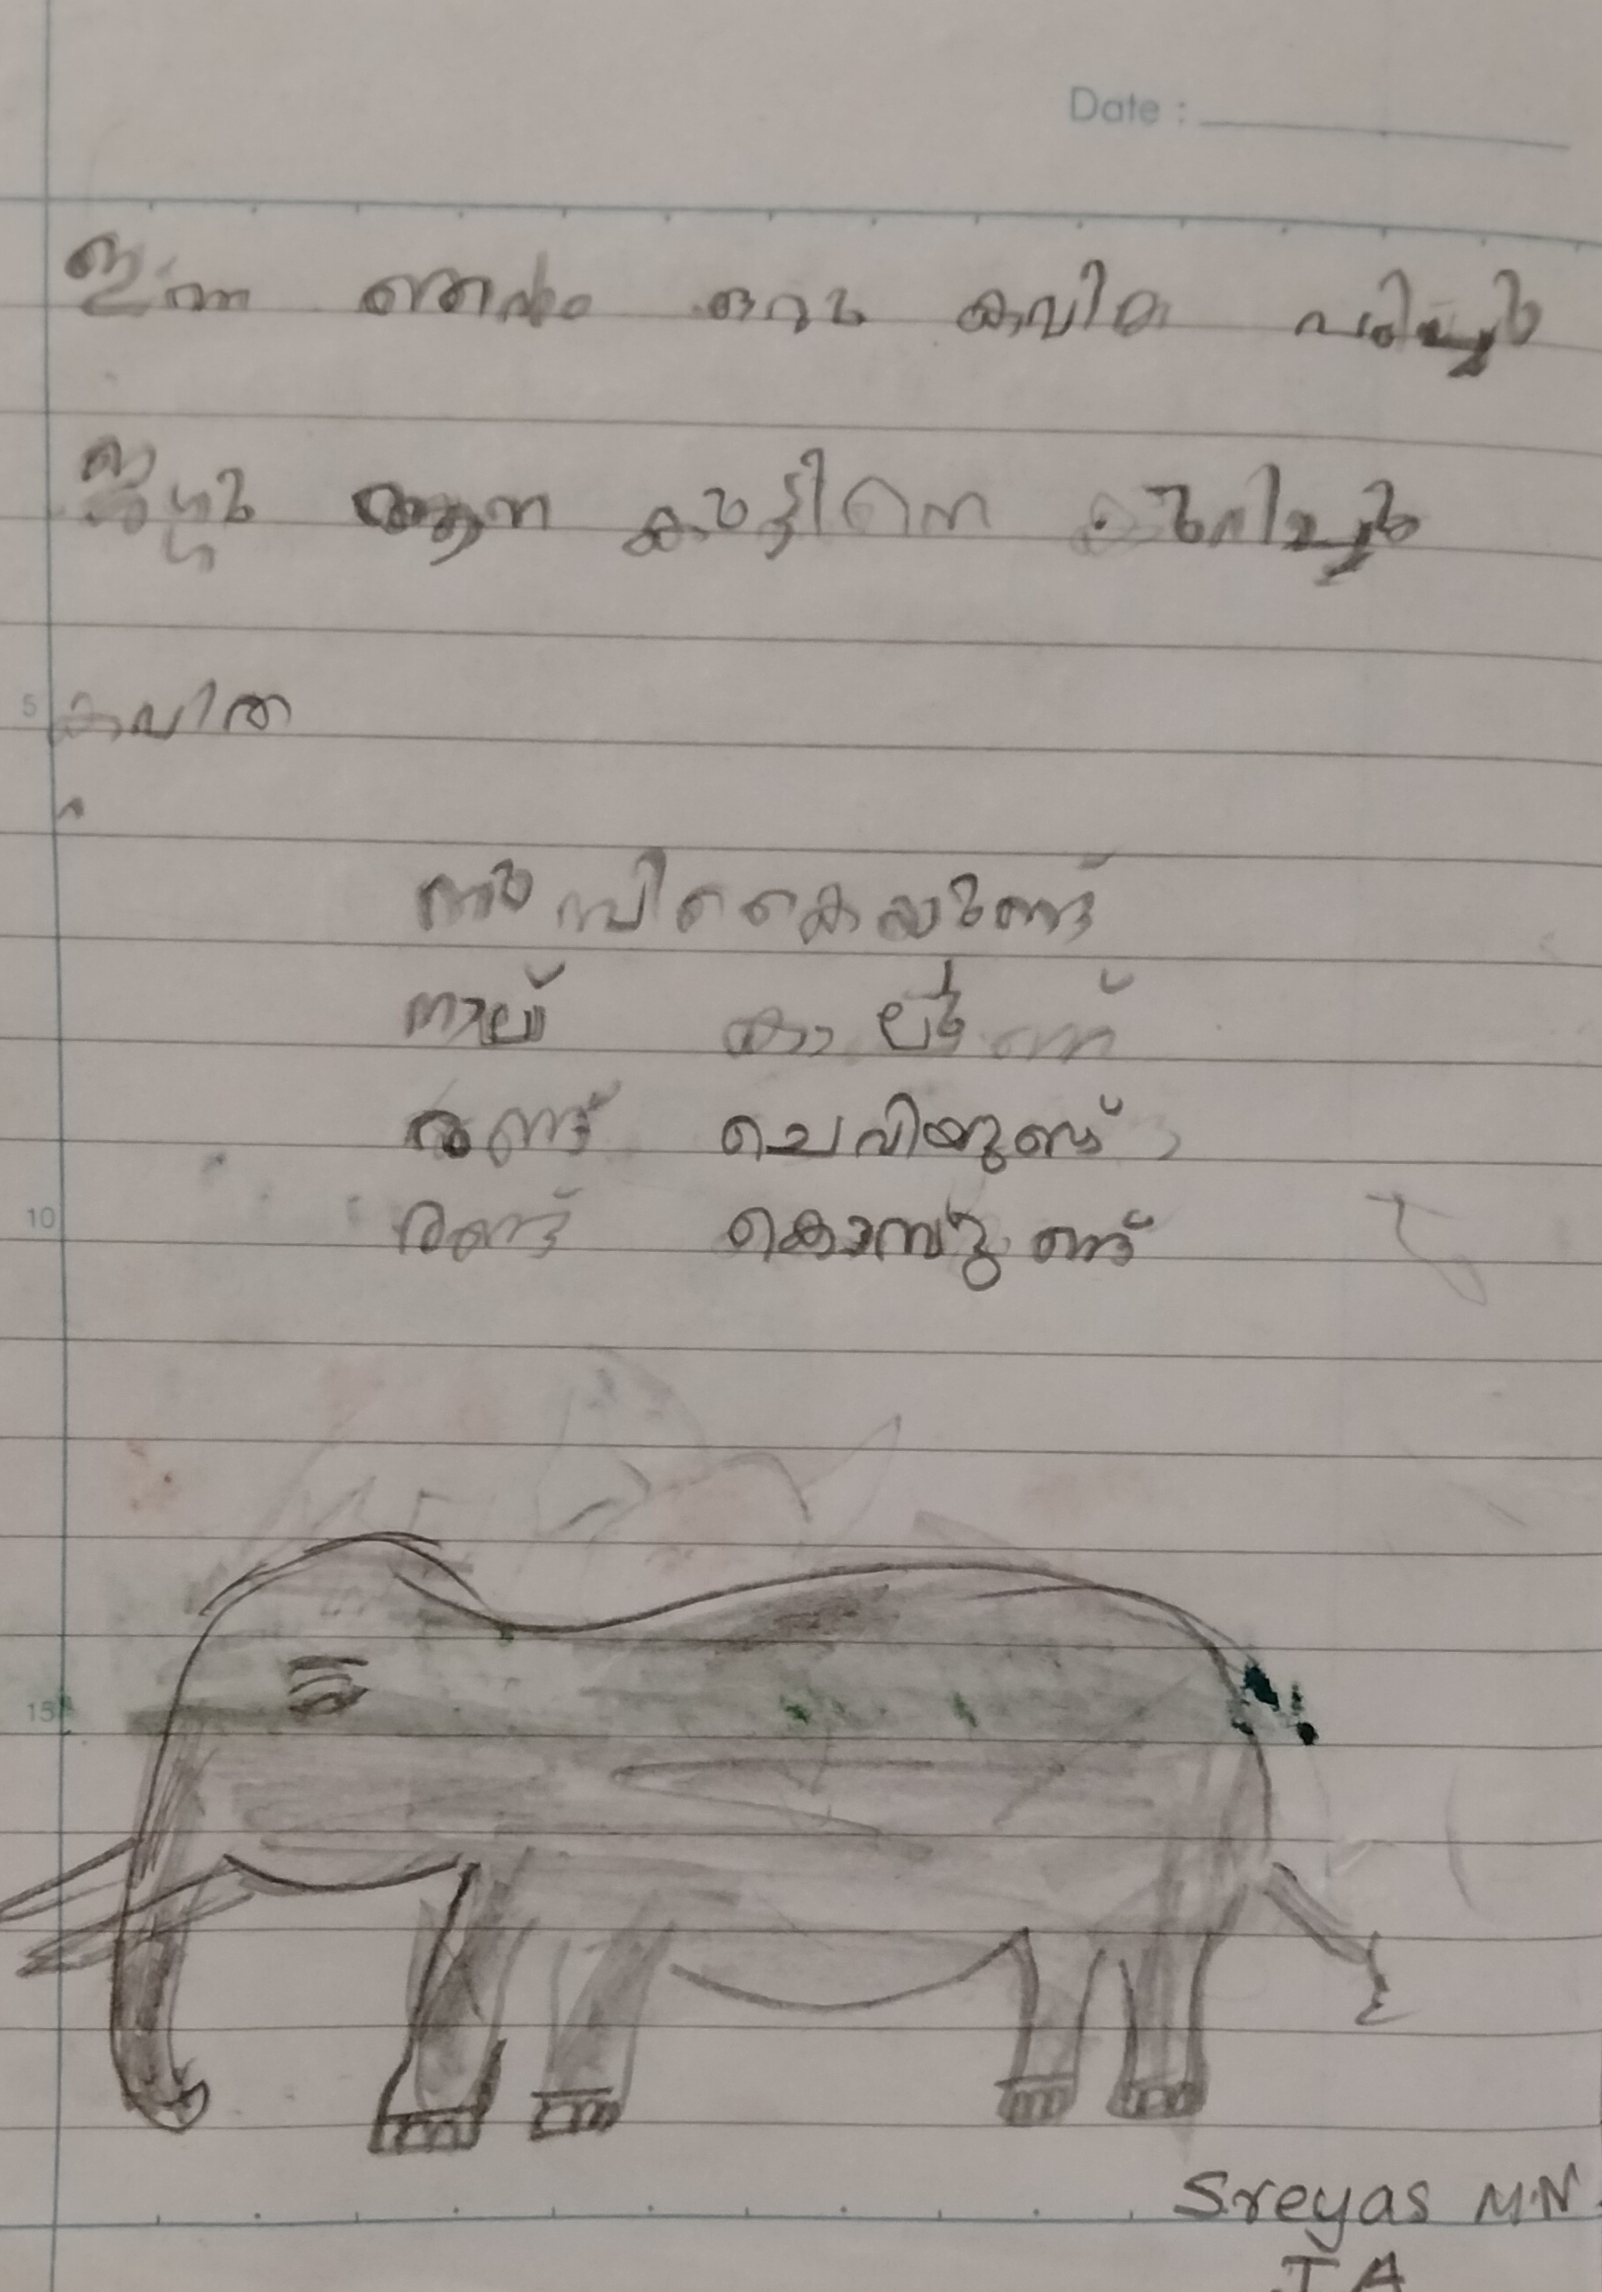 Date :
ഇന്ന ഞാൻ ഒരു കവിത പഠിച്ചു
ആന കുട്ടിനെ കുറിച്ചു
5 കവിത
തുമ്പികൈയുണ്ട്
നാല് കാലുണ്ട്
രണ്ട് ചെവിയുണ്ട്
10 രണ്ട് കൊമ്പുണ്ട്
15
Sreyas M.N.
I A